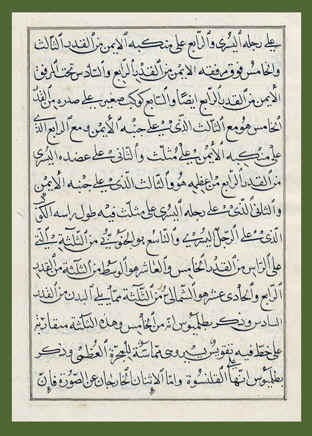 على رجله اليسرى والرابع على منكبه الايمن من القدر الثالث
والخامس فوق مرفقه الايمن من القدر الرابع والسادس تحت المرفق
الايمن من القدر الرابع ايضا والسابع كوكب صغير على صدره من القدر
الخامس هو مع الثالث الذى على جنبه الايمن ومع الرابع الذى
على منكبه الايمن على مثلث والثانى على عضده اليسرى
من القدر الرابع من عظمه هو والثالث الذى على جنبه الايمن
والثانى الذى على رجله اليسرى على مثلث فيه طول راسه الكوكب
الذى على الرجل اليسرى والتاسع هو الجنوبى من الثلثة التى
على الراس من القدر الخامس والعاشر هو الوسط من الثلثة من القدر
الرابع والحادى عشر هو الشمالى من الثلثة مما يلى البدن من القدر
السادس وذكر بطلميوس انه من الخامس وهذه الثلثة متقاربة
على خط فيه تقويس يسير وهى مماسة للمجرة العظمى وذكر
بطلميوس انها على القلنسوة واما الاثنان الخارجان عن الصورة فان